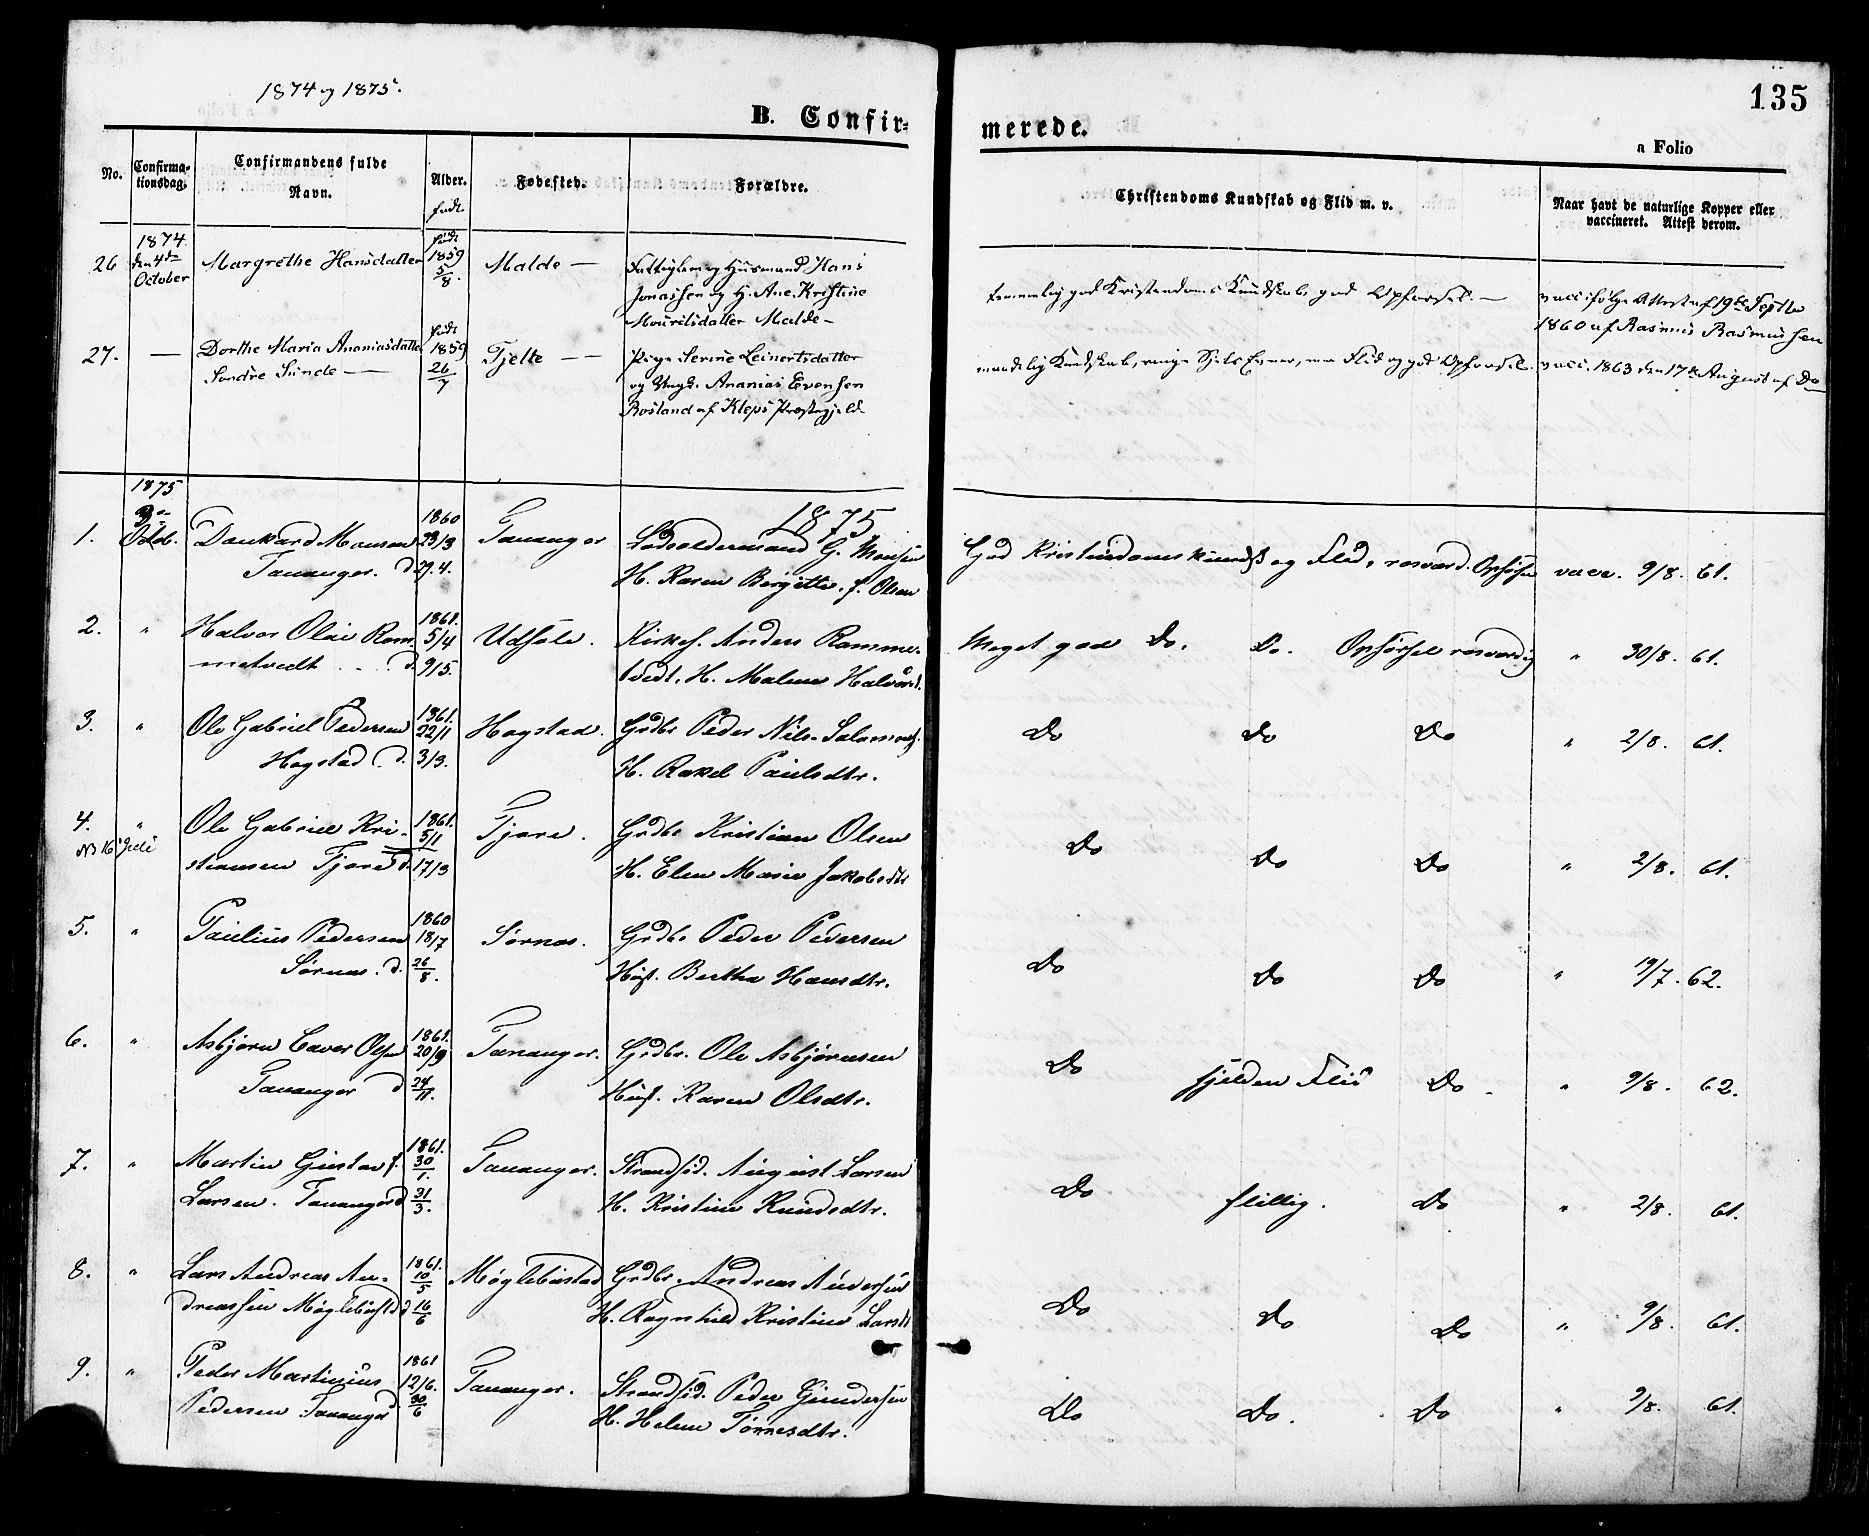 1874 og 1875.
B. Confir-
merede.
135
a Folio
No.
Confirma-
tionsdag.
Confirmandens fulde
Navn.
Alder.
født.
Fødested.
Forældre.
Christendoms Kundskab og Flid m. v.
Naar havt de naturlige Kopper eller
vaccineret. Attest derom.
26
1874.
den 4de
October
Margrethe Hansdatter
født
1859
5/8.
Malde —
Fattiglem og Husmand Hans
Jonassen og H. Ane Kristine
Mouritsdatter Malde —
temmelig god Kristendoms Kundskab, god Opførsel. —
vacc. ifølge Attest af 19de Septbr
1860 af Rasmus Rasmussen
27. —
Dorthe Maria Ananiasdatter
Søndre Sunde —
født
1859
26/7
Tjelte — —
Pige Serine Leinertsdatter
og Ungk. Ananias Evensen
Rosland af Kleps Præstegjeld
maadelig Kundskab, ringe Sjels Evner, men Flid og god Opførsel.
vacc. 1863 den 17de August af Do
1875
1.
3die
Octob.
Dankard Monsen
Tananger. d.
1860
23/3
29.4.
Tananger
1875
Lodsoldermand G. Monsen
H. Karen Birgitte f. Olsen
God Kristendomskundsk og Flid, rosværd. Opførsel
vacc. 9/8. 61.
2. "
Halvor Olai Ram-
metvedt . . d.
1861.
5/4
9/5.
Udsole.
Kirkes. Anders Ramme-
tvedt. H. Malene Halvorsd.
Meget god Do. Do. Opførsel rosværdig
" 30/8. 61.
3. "
Ole Gabriel Pedersen
Hogstad. d.
1861.
22/1
3/3.
Hogstad.
Grdbr Peder Nils. Salomons.
H. Rakel Paulsdtr.
Do Do Do
" 2/8. 61.
4. "
NB 16 Juli
Ole Gabriel Kri-
stiansen Tjore d.
1861.
5/1
17/3
Tjore.
Grdbr Kristian Olsen
H. Elen Marie Jakobsdtr
Do Do Do
" 2/8. 61.
5. "
Paulius Pedersen
Sørnes. d.
1860
18/7
26/8.
Sørnes.
Grdbr Peder Pedersen
Hust. Bertha Hansdtr.
Do Do Do
" 19/7. 62.
6. "
Asbjørn Olsen
Tananger d
1861.
20/9
24/11.
Tananger.
Grdbr. Ole Asbjørnsen
Hust. Karen Olsdtr.
Do sjelden Flid Do
" 9/8. 62.
7. "
Martin Gustav f.
Larsen. Tananger d
1861.
30/1.
31/3.
Tananger.
Strandsid. August Larsen
H. Kristine Knudsdtr.
Do flittig. Do
" 2/8. 61.
8. "
Lars Andreas An-
dreassen Møglebust d
1861.
10/5
16/6
Møglebustad
Grdbr. Andreas Andersen
H. Ragnhild Kristine Larsdt
Do Do Do
" 9/8. 61.
9. "
Peder Martinius
Pedersen Tananger d.
1861
12/6.
30/6
Tananger.
Strandsid. Peder Gundersen
H. Helene Tønnesdtr.
Do Do. Do
" 9/8. 61.